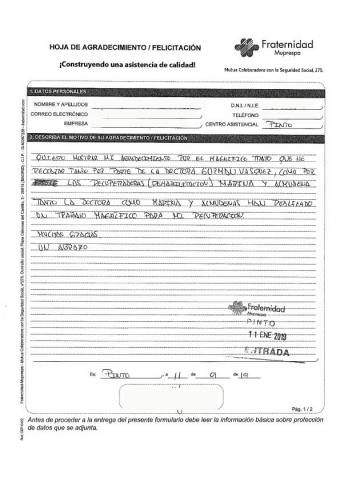 HOJA DE AGRADECIMIENTO / FELICITACIÓN
Fraternidad
Muprespa
¡Construyendo una asistencia de calidad!
Mutua Colaboradora con la Seguridad Social, 275.
1. DATOS PERSONALES
NOMBRE Y APELLIDOS
D.N.I. / N.I.E.
CORREO ELECTRÓNICO
TELÉFONO
EMPRESA
CENTRO ASISTENCIAL PINTO
2. DESCRIBA EL MOTIVO DE SU AGRADECIMIENTO / FELICITACIÓN
QUIERO MOSTRAR MI AGRADECIMIENTO POR EL MAGNÍFICO TRATO QUE HE
RECIBIDO TANTO POR PARTE DE LA DOCTORA GUZMAN VASQUEZ, COMO POR
LAS RECUPERADORAS (REHABILITACION) MARINA Y ALMUDENA
TANTO LA DOCTORA COMO MARINA Y ALMUDENA HAN REALIZADO
UN TRABAJO MAGNÍFICO PARA MI RECUPERACION.
MUCHAS GRACIAS
UN ABRAZO
Fraternidad
Muprespa
PINTO
11 ENE 2019
ENTRADA
En PINTO, a 11 de 01 de 19
Pág. 1 / 2
Antes de proceder a la entrega del presente formulario debe leer la información básica sobre protección
de datos que se adjunta.